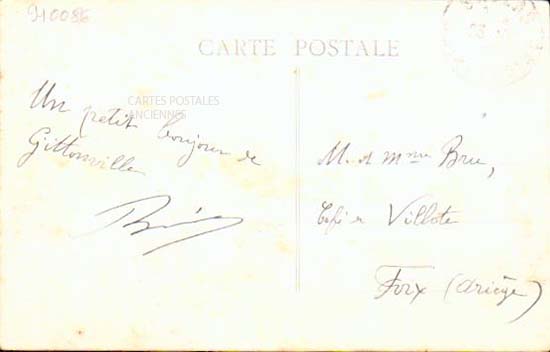 910086
CARTE POSTALE
CARTES POSTALES
ANCIENNES
Un petit bonjour de
Gittonville
M. et Mme Bru,
Café de Villote
Foix (Ariège)